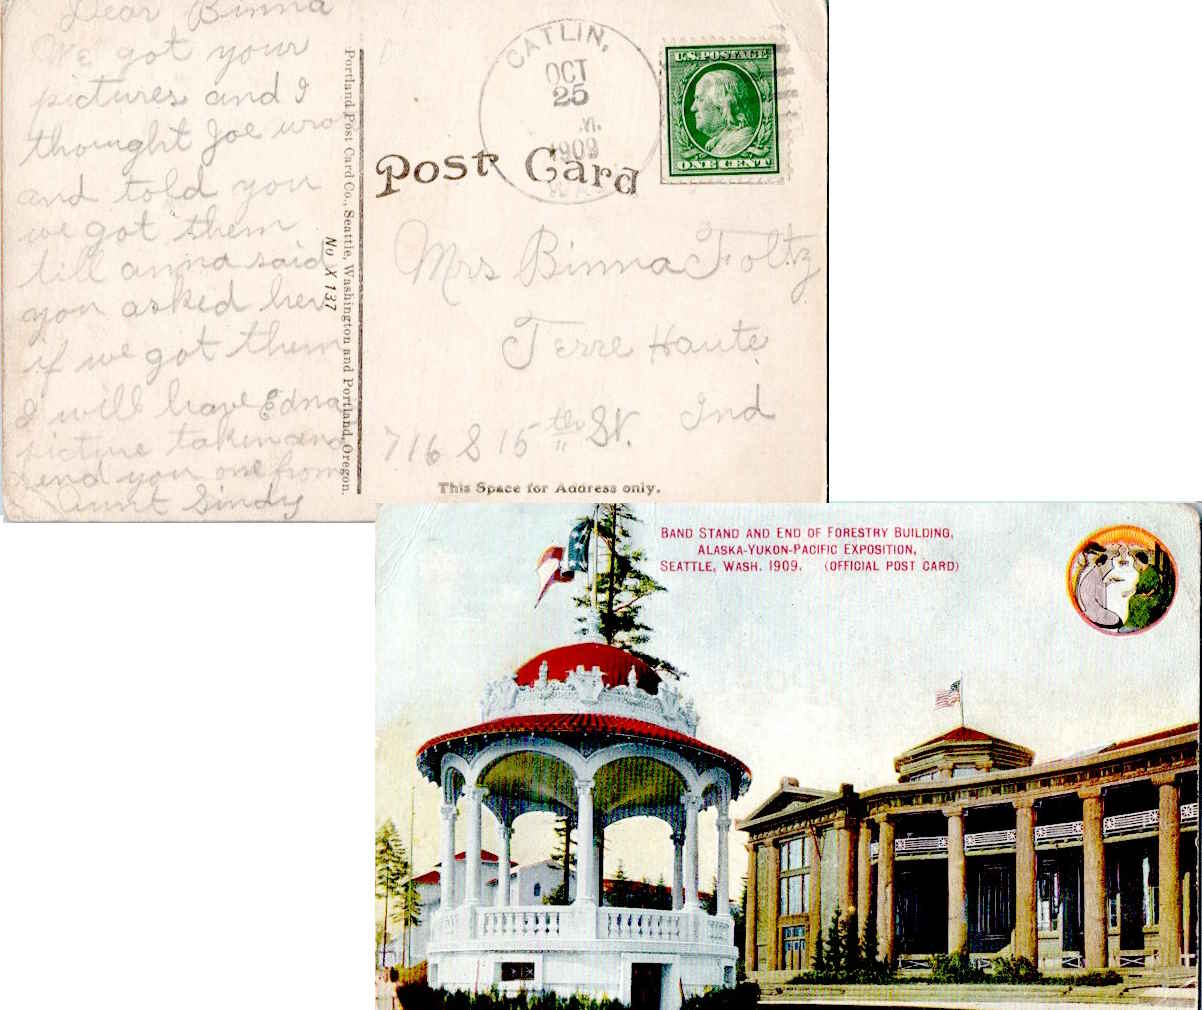 Dear Binna
We got your
pictures and I
thought Joe
and told you
we got them
till anna said
you asked her
if we got them
I will have Edna
picture taken and
send you one from
Aunt Sindy
Portland Post Card Co., Seattle, Washington and Portland, Oregon.
No X 137
CATLIN,
OCT
25
1909
U.S. POSTAGE
ONE CENT
Post Card
Mrs Binna Foltz
Terre Haute
Ind
716 S 15th St.
This Space for Address only.
BAND STAND AND END OF FORESTRY BUILDING,
ALASKA-YUKON-PACIFIC EXPOSITION,
SEATTLE, WASH. 1909. (OFFICIAL POST CARD)